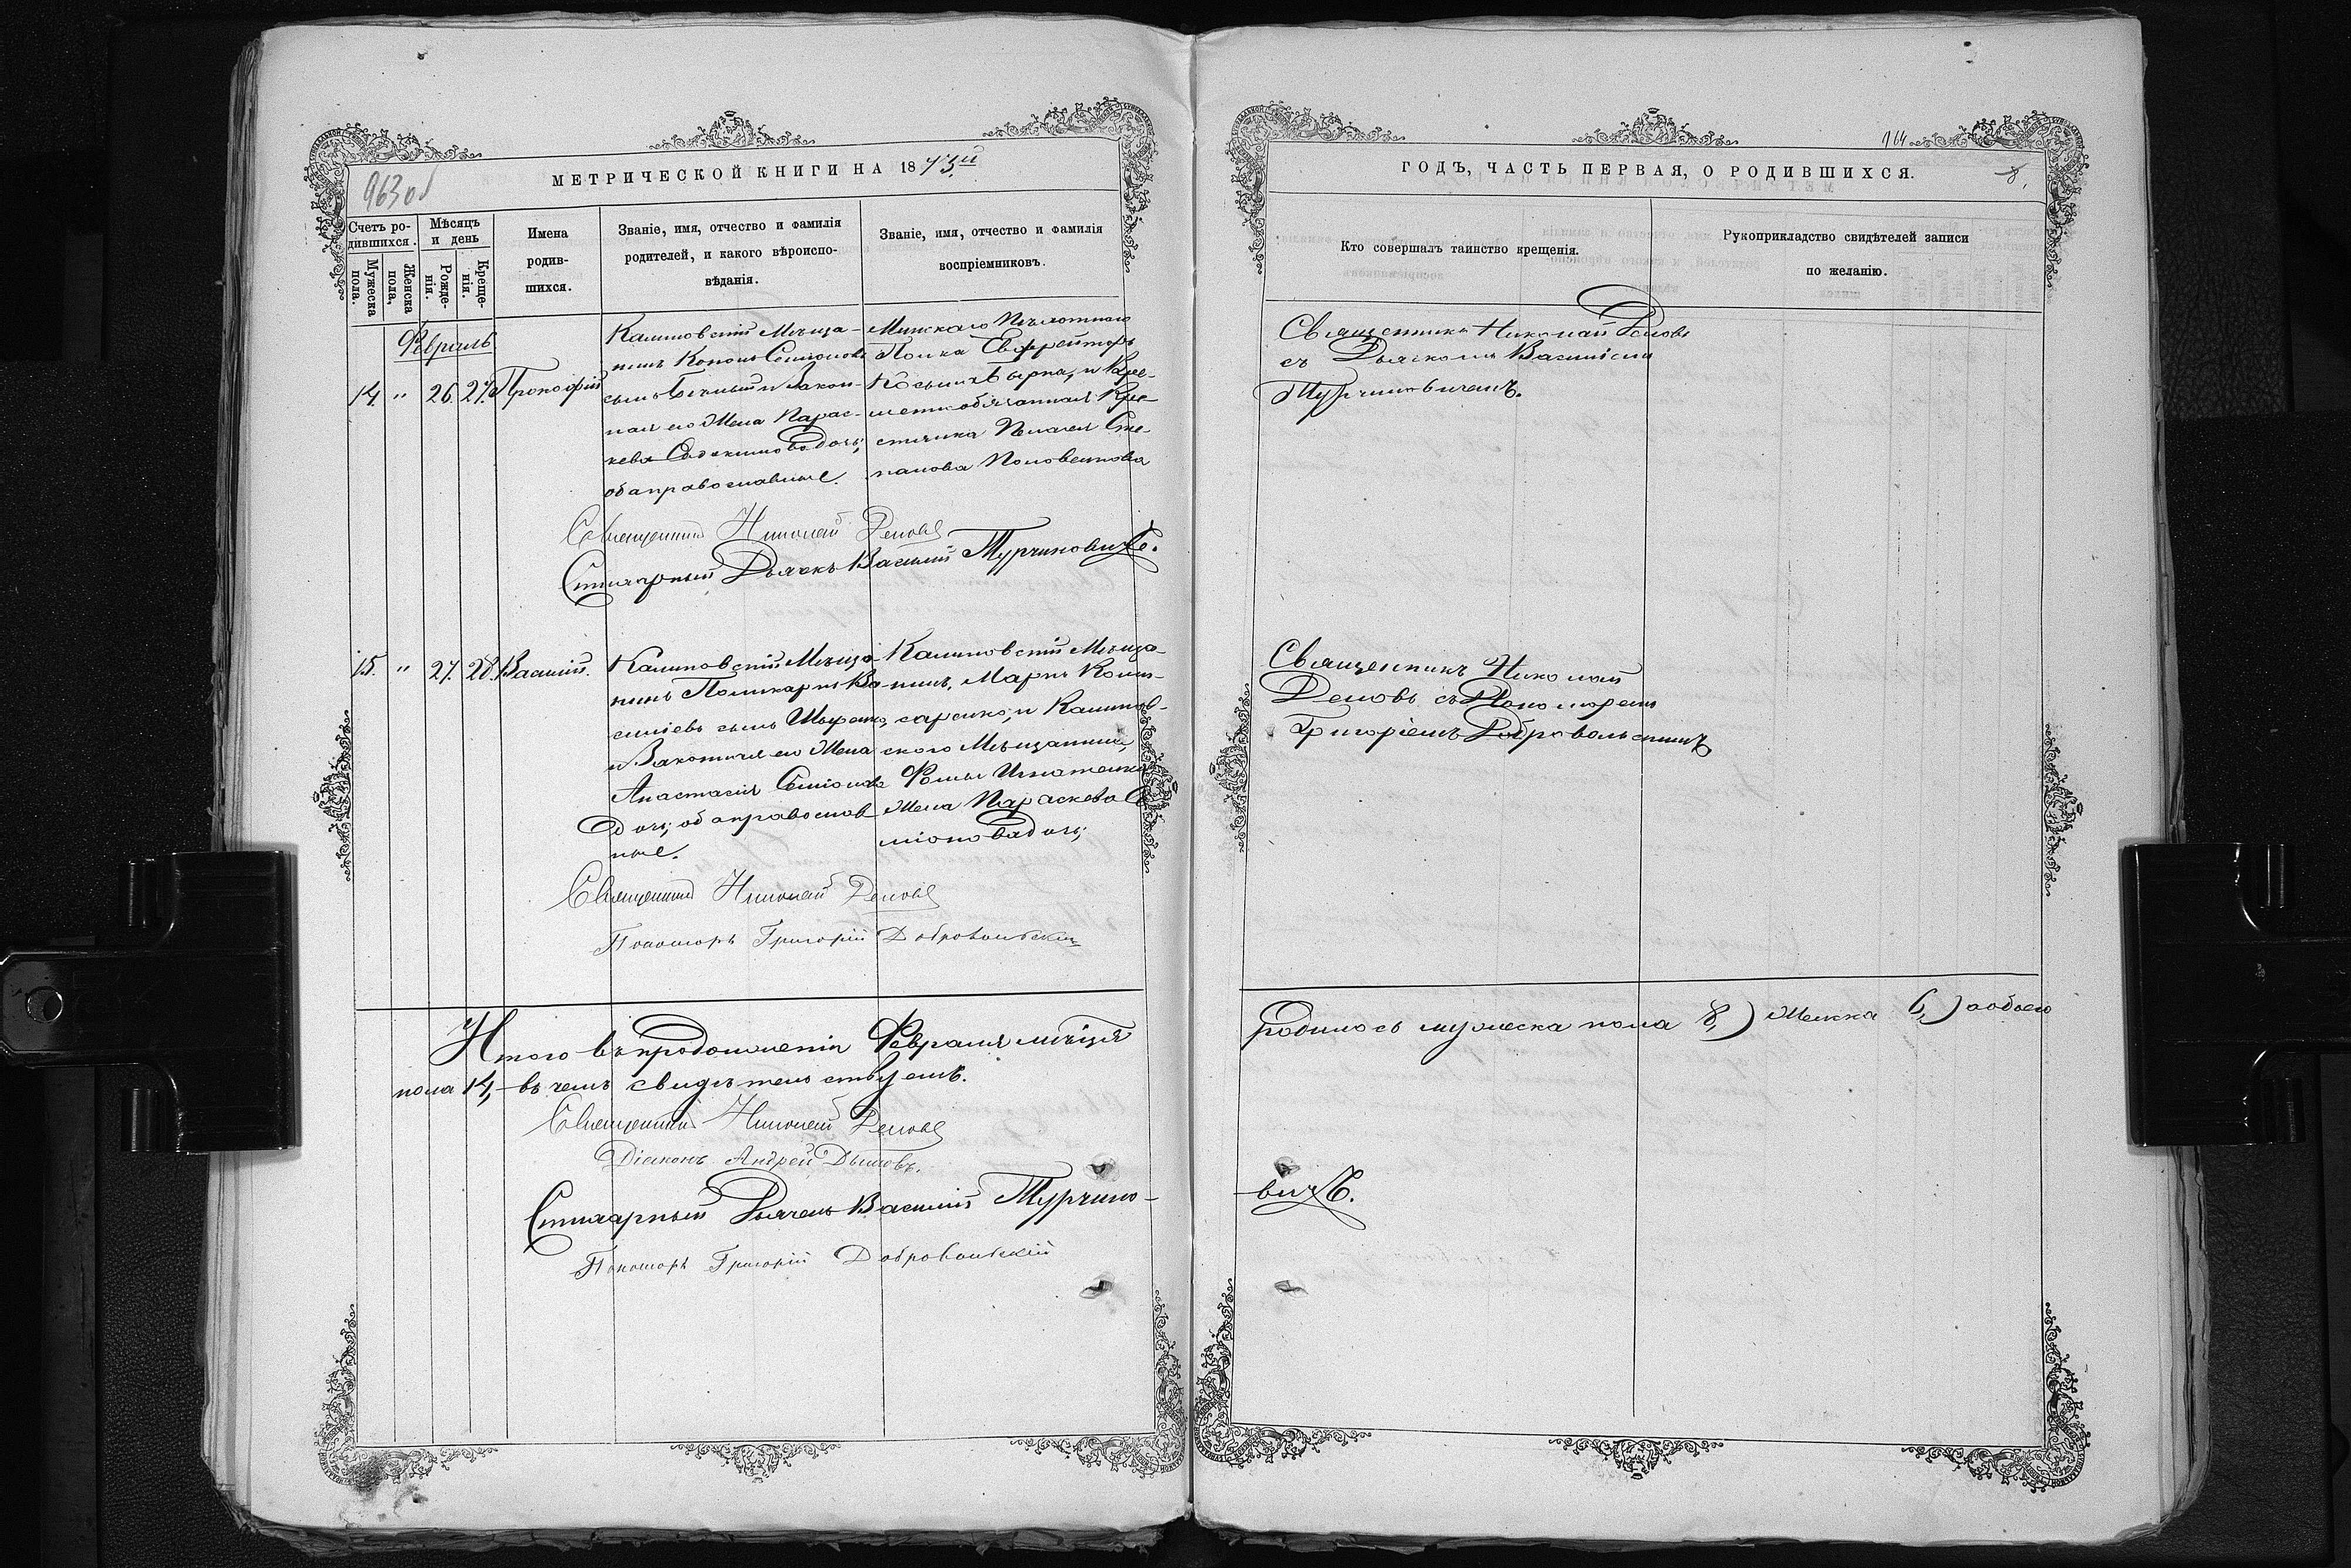 963 об
МЕТРИЧЕСКОЙ КНИГИ НА 1873й
Счетъ ро-
дившихся.
Мужеска
пола.
Женска
пола,
Мѣсяцъ
и день
Рожде-
нія.
Креще-
нія.
Имена
родив-
шихся.
Званіе, имя, отчество и фамилія
родителей, и какого вѣроиспо-
вѣданія.
Званіе, имя, отчество и фамилія
воспріемниковъ.
Февраль
14. " 26. 27. Прокофій
Калиновскій Мѣща-
нинъ Кононъ Семіоновъ
сынъ и Закон-
ная его Жена Парас-
кева дочь;
оба православные.
Минскаго Пѣхотнаго
Полка Ефрейторъ
Косьма и Вре-
менно обязанная Кре-
стьянка Пелагея Сте-
панова
Священникъ Николай
Стихарный Дьячекъ Василій Турчиновичъ.
15. " 27. 28. Василій.
Калиновскій Мѣща-
нинъ Поликарпъ Ва-
силіевъ сынъ
и Законная его Жена
Анастасія Семіонова
дочь; оба православ-
ные.
Калиновскій Мѣща-
нинъ, Маркъ Комис-
саренко, и Калинов-
скаго Мѣщанина,
Фомы Игнатенка
Жена Параскева Се-
міонова дочь;
Священникъ Николай
Пономарь Григорій Добровольскій
Итого въ продолженіи Февраля мѣсяца
пола 14,- въ чемъ свидѣтельствуемъ.
Священникъ Николай
Діаконъ Андрей
Стихарный Дьячекъ Василій Турчино-
Пономарь Григорій Добровольскій
964
8.
ГОДЪ, ЧАСТЬ ПЕРВАЯ, О РОДИВШИХСЯ.
Кто совершалъ таинство крещенія.
Рукоприкладство свидѣтелей записи
по желанію.
Священникъ Николай
съ Дьячкомъ Василіемъ
Турчиновичемъ.
Священникъ Николай
съ Пономаремъ
Григоріемъ Добровольскимъ
родилось мужеска пола 8,) женска 6,) а обоего
вичъ.